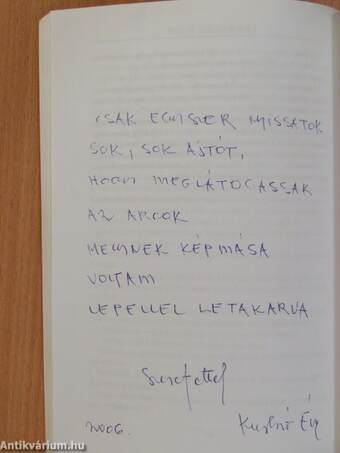 CSAK EGYSZER NYISSATOK
SOK, SOK AJTÓT,
HOGY MEGLÁTOGASSAK
AZ ARCOK
MELYNEK KÉPMÁSA
VOLTAM
LEPELLEL LETAKARVA
Szeretettel
2006.
Antikvárium.hu